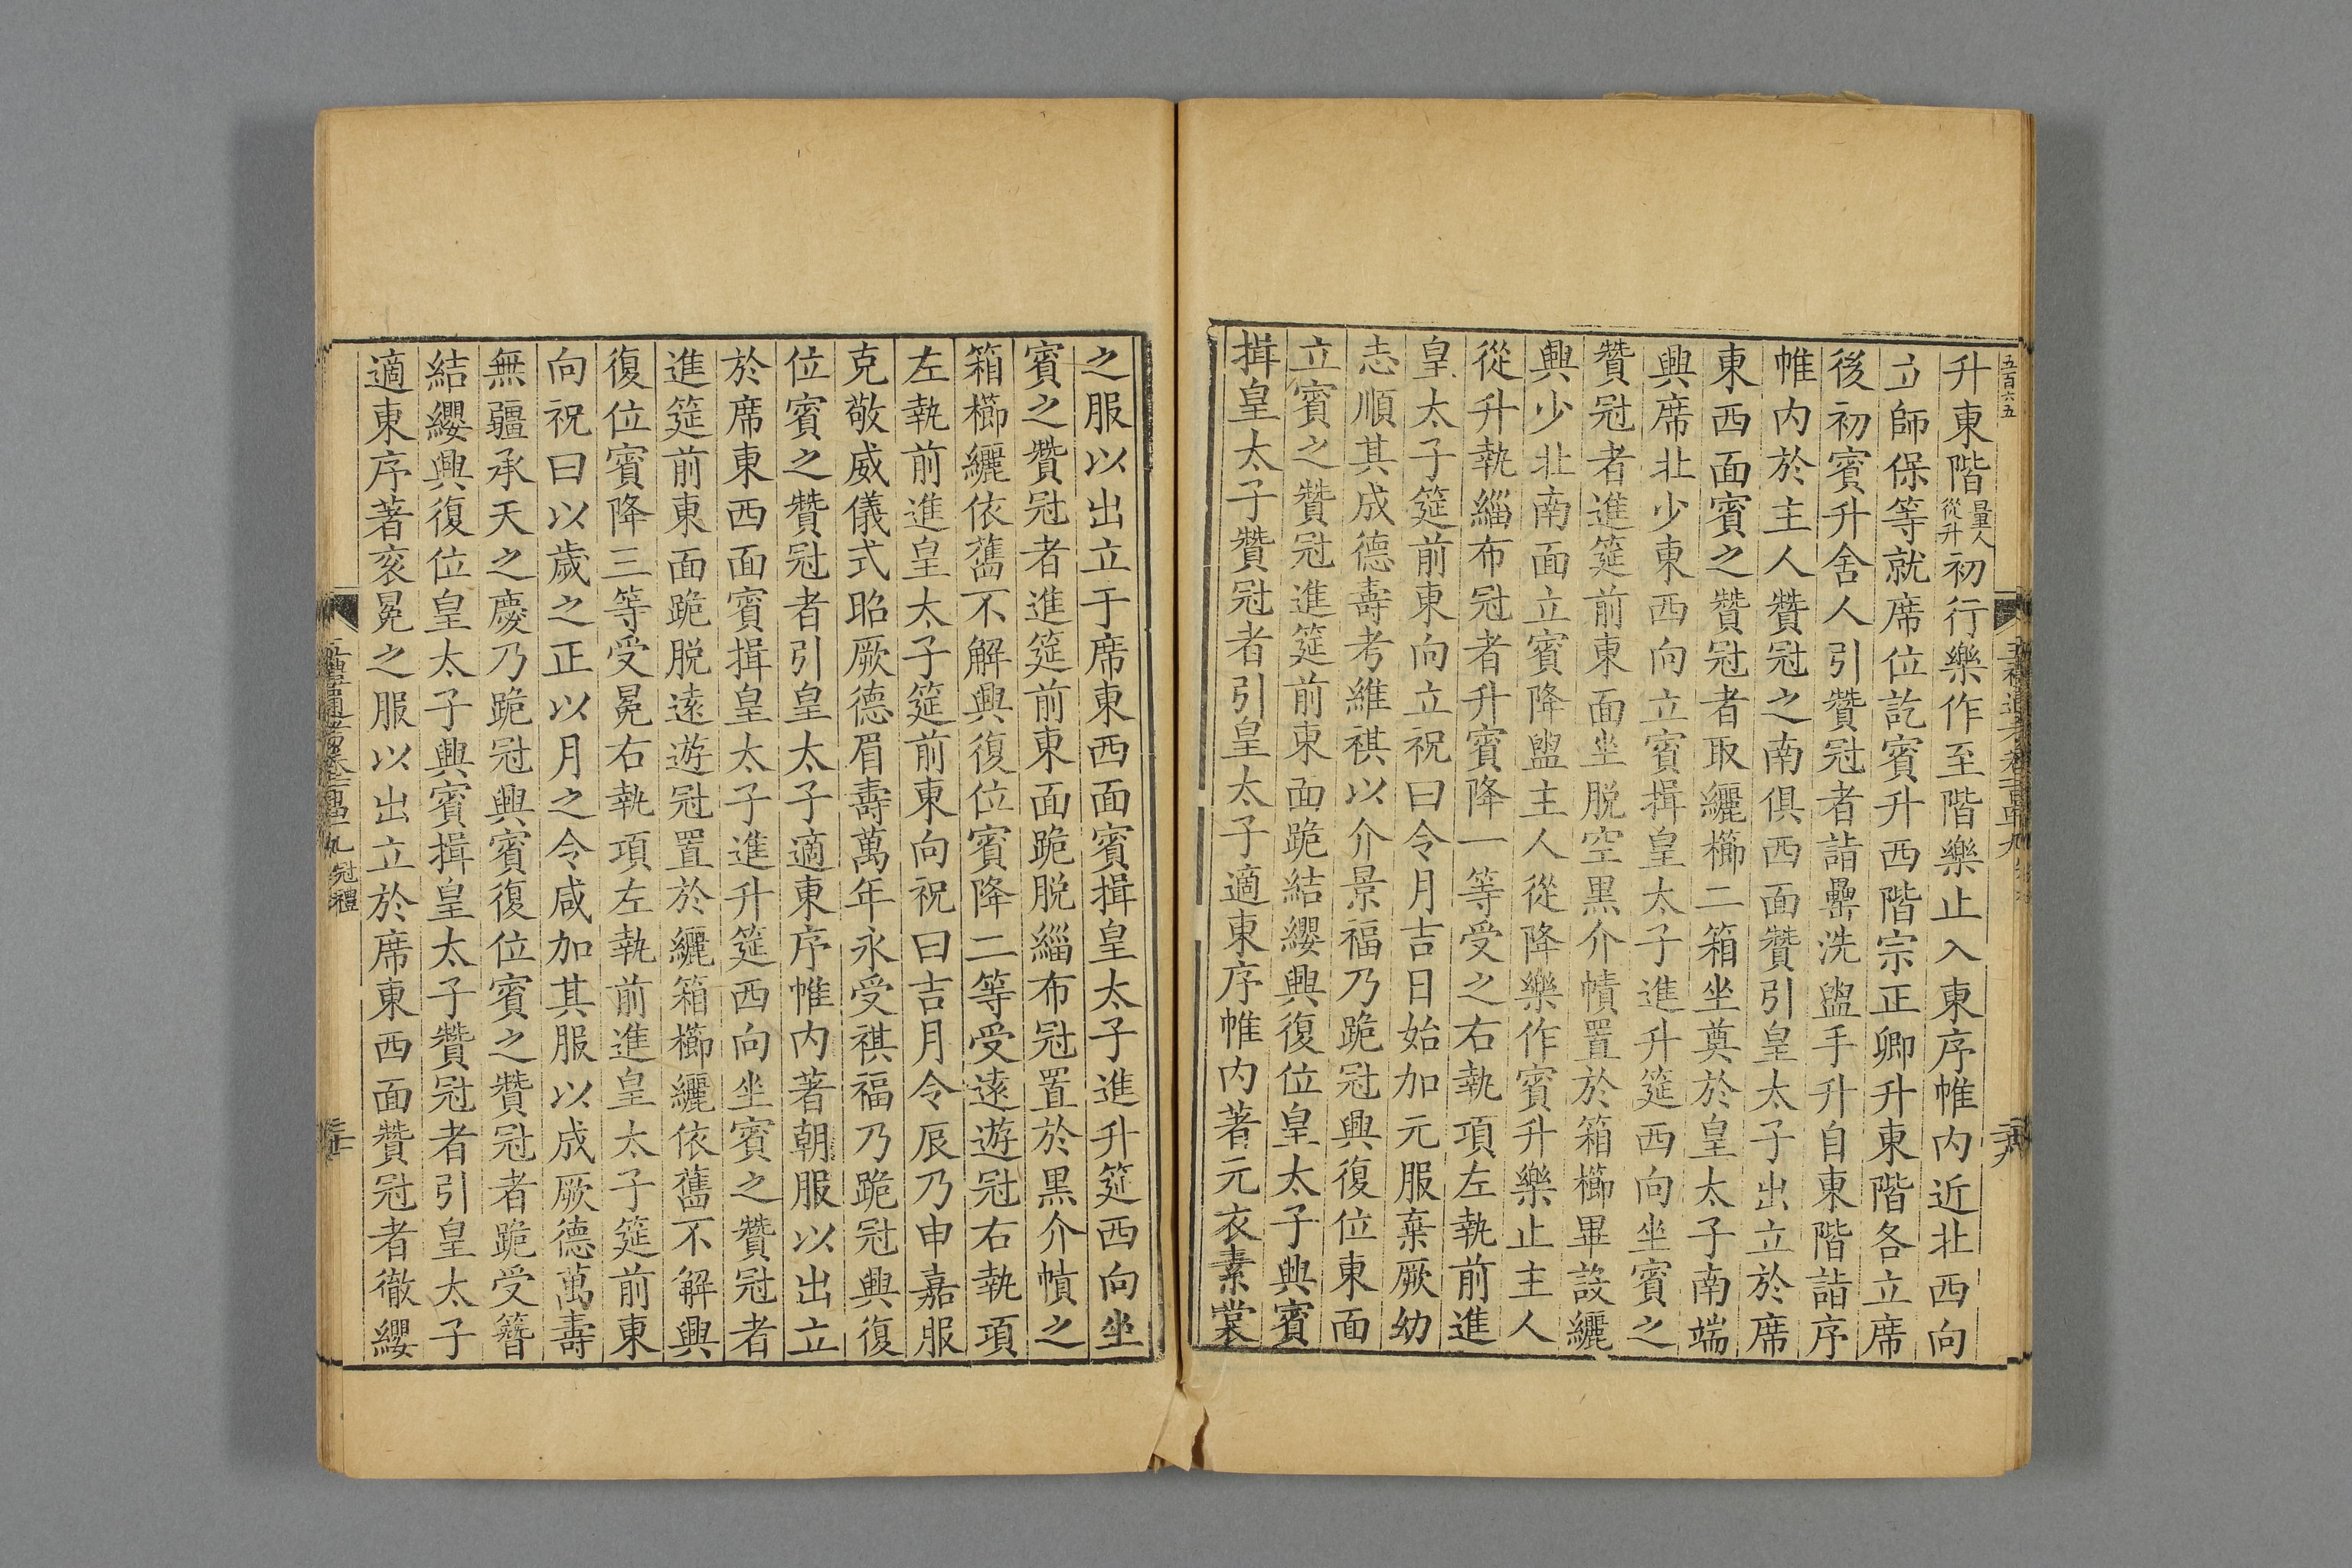 五百六五
升東階量人從升初行樂作至階樂止入東序帷内近北西向
立師保等就席位訖賓升西階宗正卿升東階各立席
後初賓升舍人引贊冠者詣罍洗盥手升自東階詣序
帷内於主人贊冠之南俱西面贊引皇太子出立於席
東西面賓之贊冠者取纚櫛二箱坐奠於皇太子南端
興席北少東西向立賓揖皇太子進升筵西向坐賓之
贊冠者進筵前東面坐脱空黑介幘置於箱櫛畢設纚
興少北南面立賓降盥主人從降樂作賓升樂止主人
從升執緇布冠者升賓降一等受之右執項左執前進
皇太子筵前東向立祝曰令月吉日始加元服棄厥幼
志順其成德壽考維祺以介景福乃跪冠興復位東面
立賓之贊冠進筵前東面跪結纓興復位皇太子興賓
揖皇太子贊冠者引皇太子適東序帷内著元衣素裳
之服以出立于席東西面賓揖皇太子進升筵西向坐
賓之贊冠者進筵前東面跪脱緇布冠置於黑介幘之
箱櫛纚依舊不解興復位賓降二等受遠遊冠右執項
左執前進皇太子筵前東向祝曰吉月令辰乃申嘉服
克敬威儀式昭厥德眉壽萬年永受祺福乃跪冠興復
位賓之贊冠者引皇太子適東序帷内著朝服以出立
於席東西面賓揖皇太子進升筵西向坐賓之贊冠者
進筵前東面跪脱遠遊冠置於纚箱櫛纚依舊不解興
復位賓降三等受冕右執項左執前進皇太子筵前東
向祝曰以歲之正以月之令咸加其服以成厥德萬壽
無疆承天之慶乃跪冠興賓復位賓之贊冠者跪受簪
結纓興復位皇太子興賓揖皇太子贊冠者引皇太子
適東序著衮冕之服以出立於席東西面贊冠者徹纓
冠禮